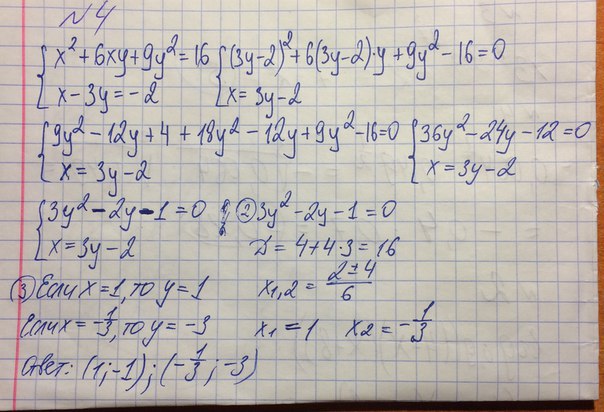 №4
{ x² + 6xy + 9y² = 16 { (3y-2)² + 6(3y-2)·y + 9y² - 16 = 0
x - 3y = -2 x = 3y - 2
{ 9y² - 12y + 4 + 18y² - 12y + 9y² - 16 = 0 { 36y² - 24y - 12 = 0
x = 3y - 2 x = 3y - 2
{ 3y² - 2y - 1 = 0 ② 3y² - 2y - 1 = 0
x = 3y - 2 D = 4 + 4·3 = 16
③ Если x = 1, то y = 1 x₁,₂ = (2±4)/6
Если x = -1/3, то y = -3 x₁ = 1 x₂ = -1/3
Ответ: (1; -1); (-1/3; -3)